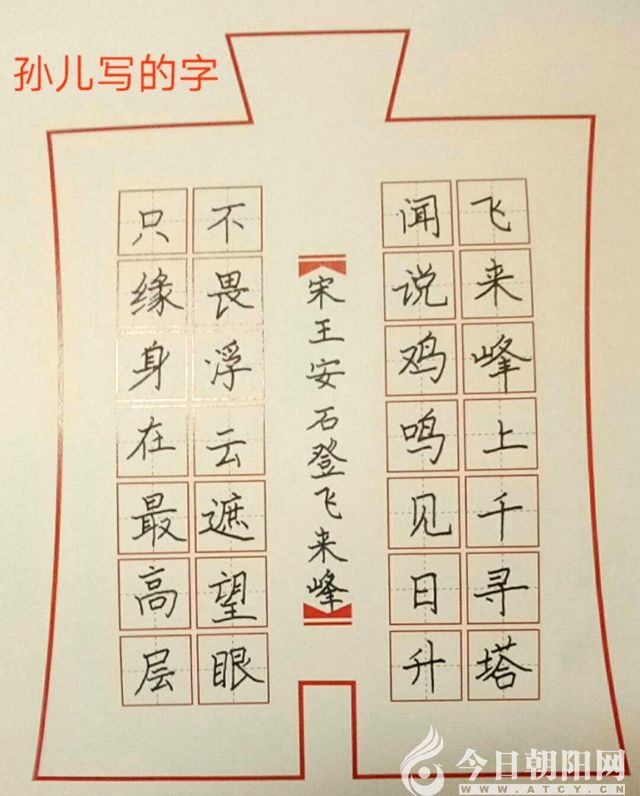 孙儿写的字
飞来峰上千寻塔
闻说鸡鸣见日升
宋王安石登飞来峰
不畏浮云遮望眼
只缘身在最高层
今日朝阳网
WWW.ATCY.CN